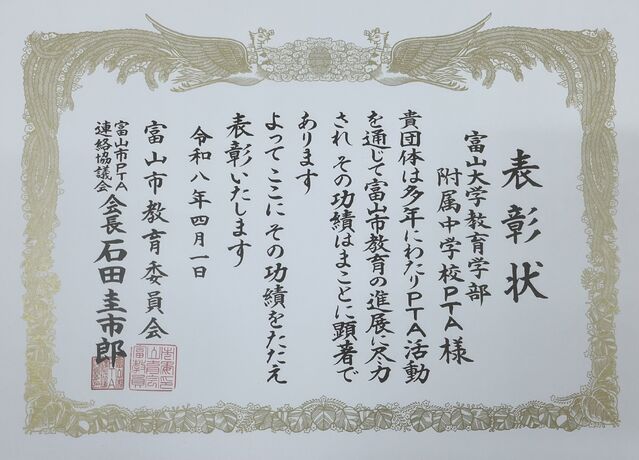 表彰状
富山大学教育学部
附属中学校PTA様
貴団体は多年にわたりPTA活動
を通じて富山市教育の進展に尽力
され その功績はまことに顕著で
あります
よってここにその功績をたたえ
表彰いたします
令和八年四月一日
富山市教育委員会
富山市PTA
連絡協議会
会長 石田圭市郎